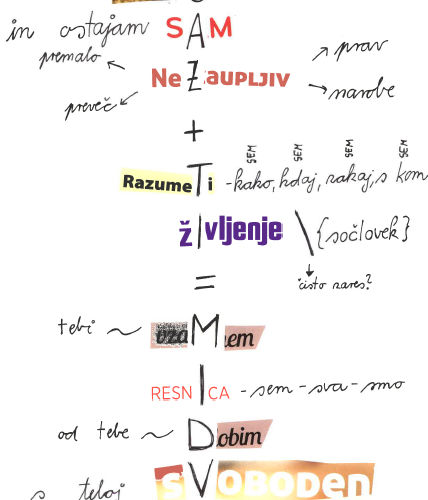 in ostajam SAM
premalo
prav
Ne ZAUPLJIV
preveč
narobe
+
SEM SEM SEM SEM
RazumeTi - kako, kdaj, zakaj, s kom
žIvljenje \ {sočlovek}
=
čisto zares?
tebi ~ vzaMem
RESNICA - sem - sva - smo
od tebe ~ Dobim
s teboj SVOBODen